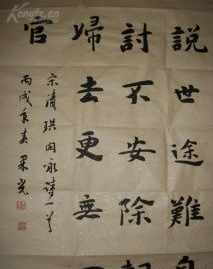 說世途難
討不安除
婦去更無
官
宋清珙閑詠詩一首
丙戌年春